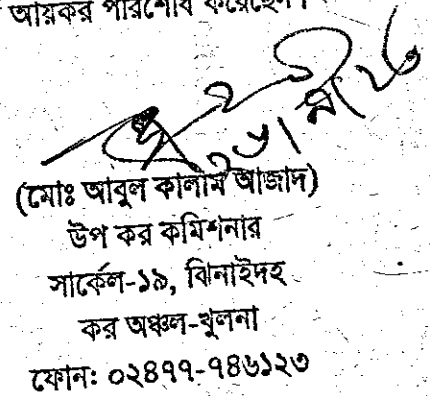 আয়কর পরিশোধ করেছেন।
(মোঃ আবুল কালাম আজাদ)
উপ কর কমিশনার
সার্কেল-১৯, ঝিনাইদহ
কর অঞ্চল-খুলনা
ফোন: ০২৪৭৭-৭৪৬১২৩